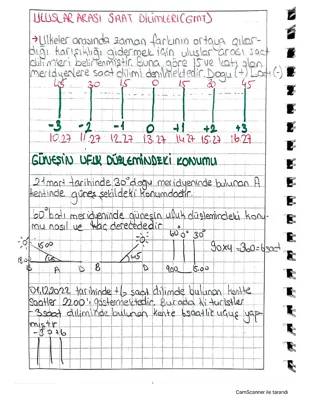 ULUSLAR ARASI SAAT DİLİMLERİ (GMT)
→Ülkeler arasında zaman farkının ortaya çıkar-
dığı karışıklığı gidermek için uluslar arası saat
dilimleri belirlenmiştir. Buna göre 15 ve katı olan
meridyenlere saat dilimi denilmektedir. Doğu (+) Batı (-)
45 30 15 0 15 30 45
-3 -2 -1 0 +1 +2 +3
10.27 11.27 12.27 13.27 14.27 15.27 16.27
GÜNEŞİN UFUK DÜZLEMİNDEKİ KONUMU
21 mart tarihinde 30° doğu meridyeninde bulunan A
kentinde güneş şekildeki konumdadır.
60° batı meridyeninde güneşin ufuk düzlemindeki konu-
mu nasıl ve kaç derecededir
60° 0° 30°
1500
90x4=360=6 saat
45
B A D B D
900 1500
01.12.2022 tarihinde +6 saat dilimde bulunan kentte
saatler 22.00'ı göstermektedir. Burada ki turistler
-3 saat diliminde bulunan kente 8 saatlik uçuş yap-
mıştır
-3 0 +6
CamScanner ile tarandı